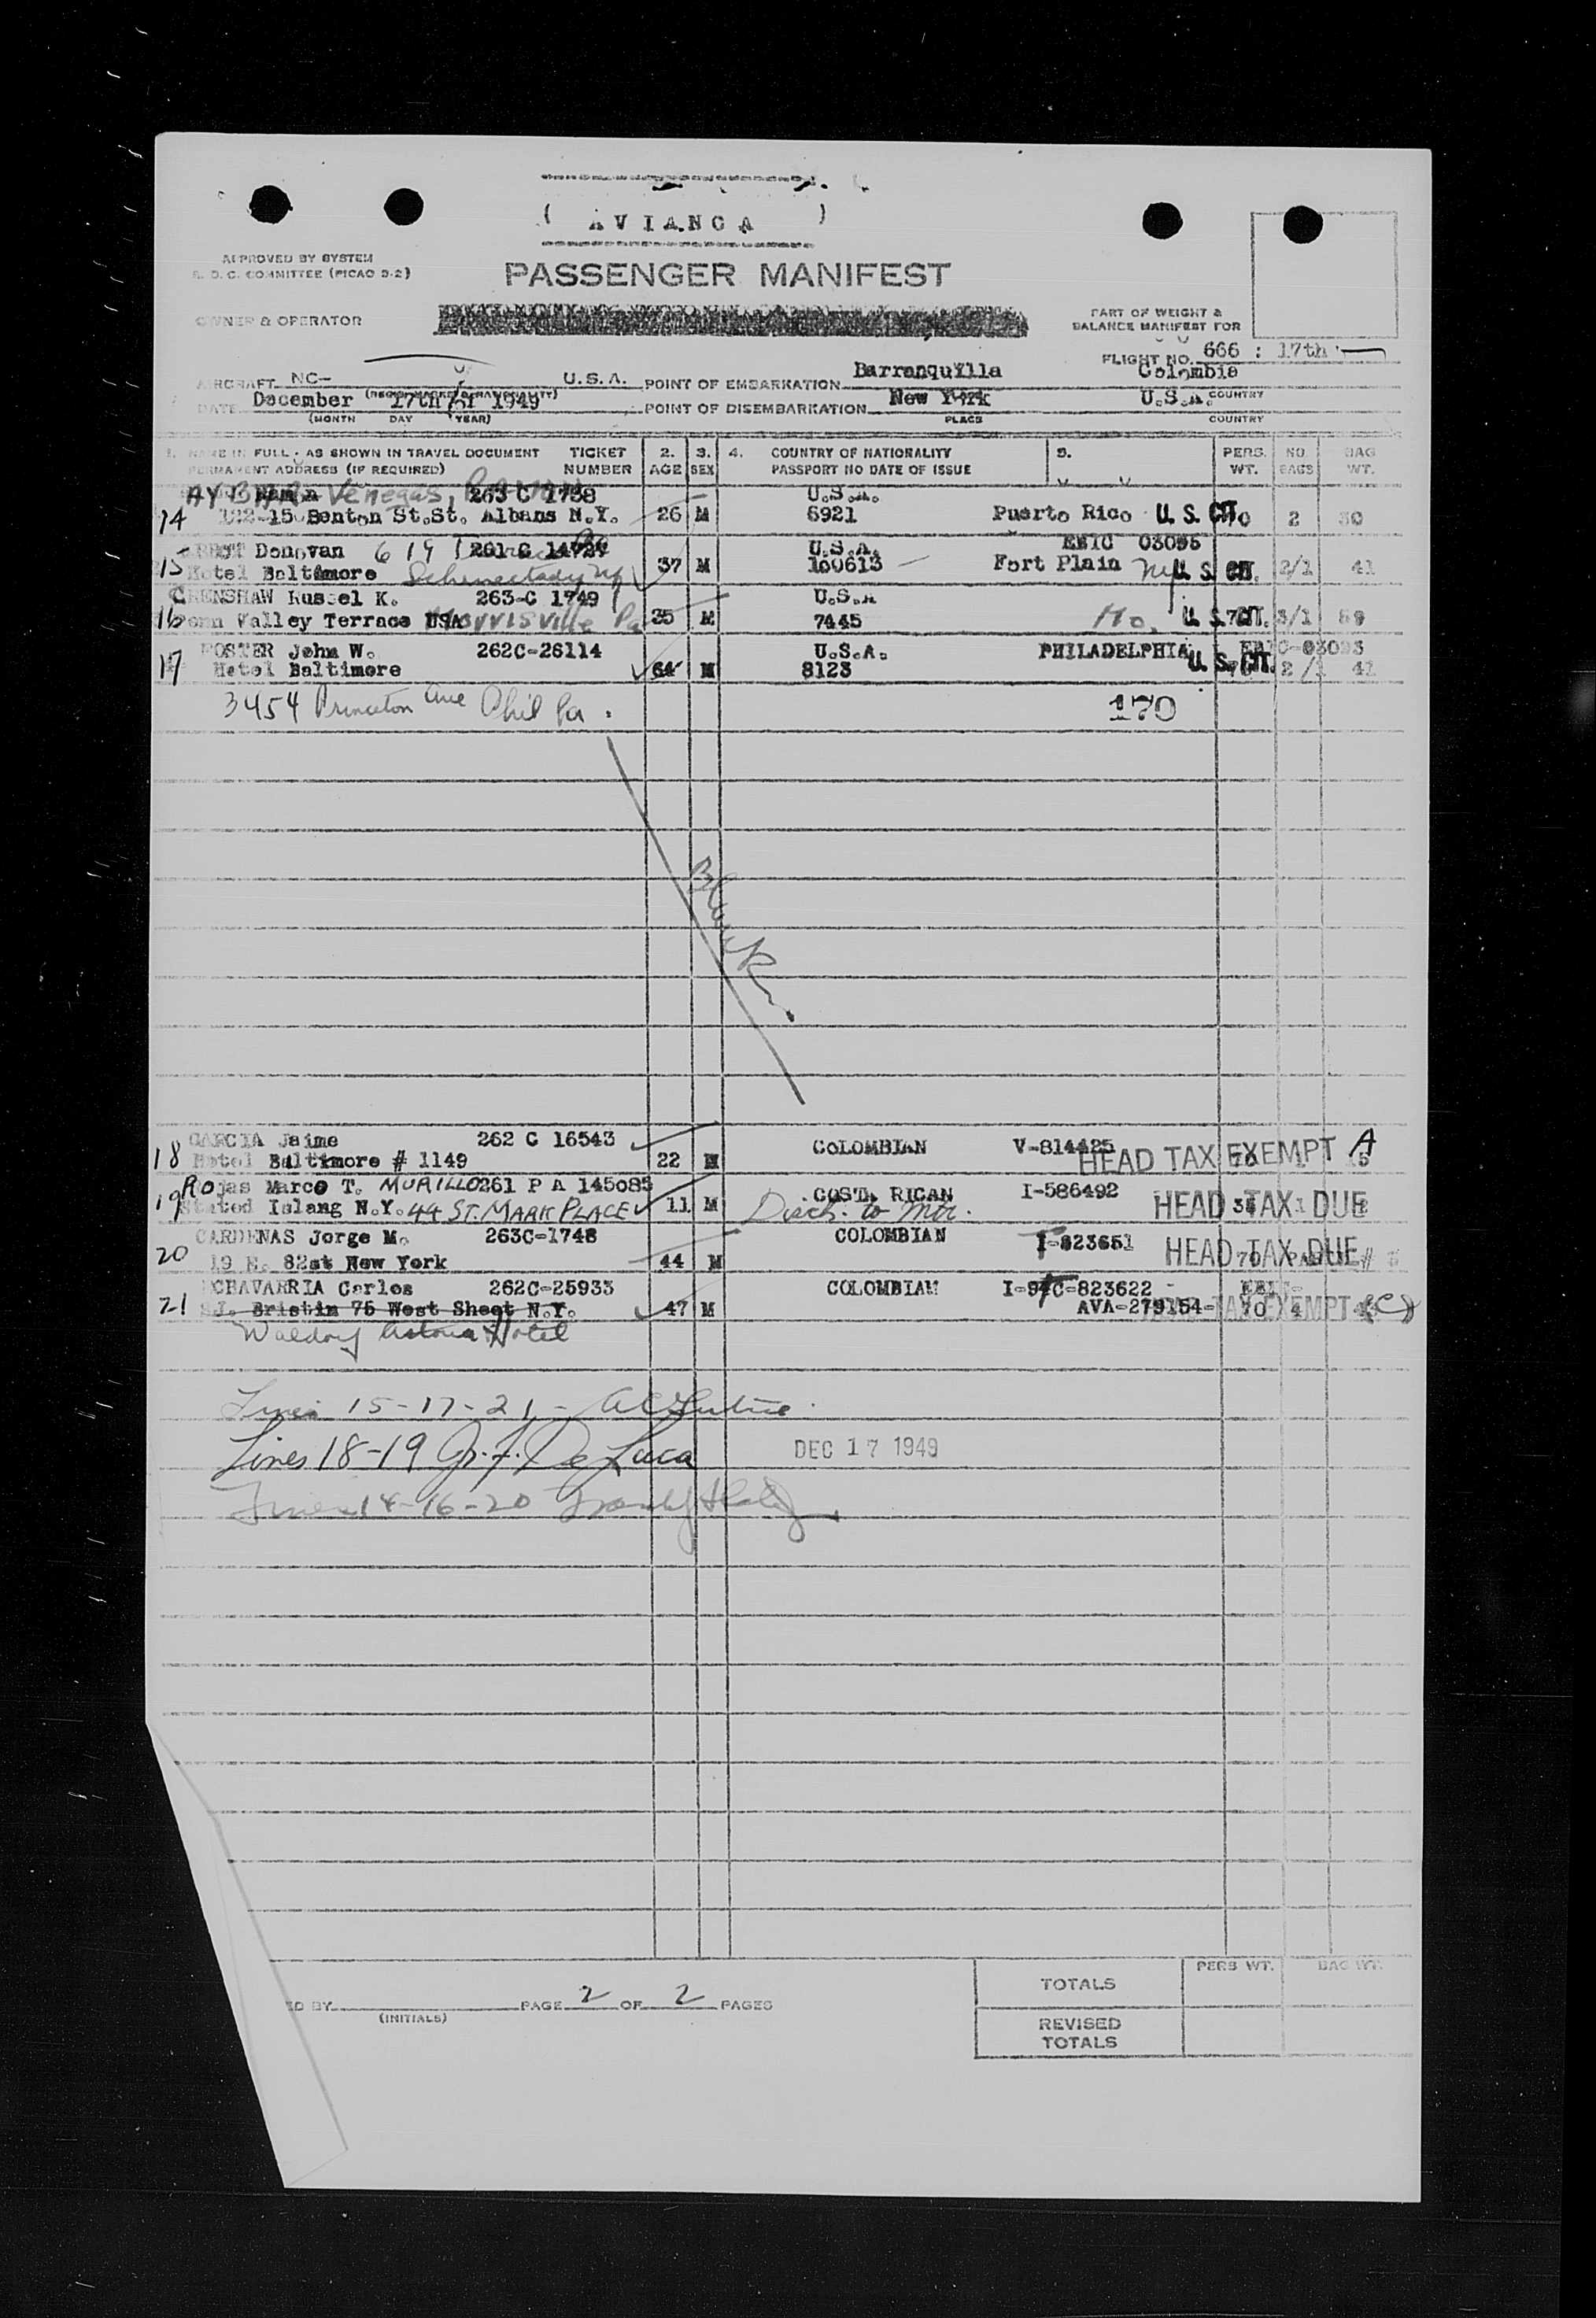 ( AVIANCA )
APPROVED BY SYSTEM
COMMITTEE (PICAO 9-2)
PASSENGER MANIFEST
OWNER & OPERATOR
PART OF WEIGHT &
BALANCE MANIFEST FOR
FLIGHT NO. 666 : 17th
AIRCRAFT NC- U.S.A. POINT OF EMBARKATION Barranquilla Colombia
DATE December 17th 1949 POINT OF DISEMBARKATION New York U.S.A. COUNTRY
(MONTH DAY YEAR) PLACE COUNTRY
1. NAME IN FULL - AS SHOWN IN TRAVEL DOCUMENT TICKET 2. 3. 4. COUNTRY OF NATIONALITY 5. PERS. NO. BAG
PERMANENT ADDRESS (IF REQUIRED) NUMBER AGE SEX PASSPORT NO DATE OF ISSUE WT. BAGS WT.
Venegas, 263 C 1758 U.S.A.
14 Benton St. St. Albans N.Y. 26 M 6921 Puerto Rico U. S. CIT. 2 30
Donovan 619 U.S.A. EBIC 03095
15 Hotel Baltimore Schenectady NY 37 M 100613 Fort Plain NY U. S. CIT. 2/1 41
CRENSHAW Russel K. 263-C 1749 U.S.A
16 Valley Terrace USA Morrisville Pa 35 M 7445 Mo. U. S. CIT. 3/1 89
FOSTER John W. 262C-26114 U.S.A. PHILADELPHIA EBIC-03093
17 Hotel Baltimore 64 M 8123 U. S. CIT. 2/1 41
3454 Princeton Ave Phil Pa. 170
Blank
GARCIA Jaime 262 C 16543 COLOMBIAN V-814425
18 Hotel Baltimore # 1149 22 M HEAD TAX EXEMPT A
Rojas Marco T. MURILLO 261 P A 145085 COSTA RICAN I-586492
19 Stated Islang N.Y. 44 ST. MARK PLACE 11 M Disch. to Mtr. HEAD TAX DUE
CARDENAS Jorge M. 263C-1748 COLOMBIAN I-823651
20 19 E. 82st New York 44 M HEAD TAX DUE
ECHAVARRIA Carlos 262C-25933 COLOMBIAN I-94C-823622 EBIC-
21 J. Bristim 75 West Sheet N.Y. 47 M AVA-279154- 70 4 TAX EXEMPT (C)
Waldorf Astoria Hotel
Lines 15-17-21-
Lines 18-19 J. F. De Luca DEC 17 1949
Lines 14-16-20
TOTALS PERS WT. BAG WT.
ED BY (INITIALS) PAGE 2 OF 2 PAGES
REVISED
TOTALS